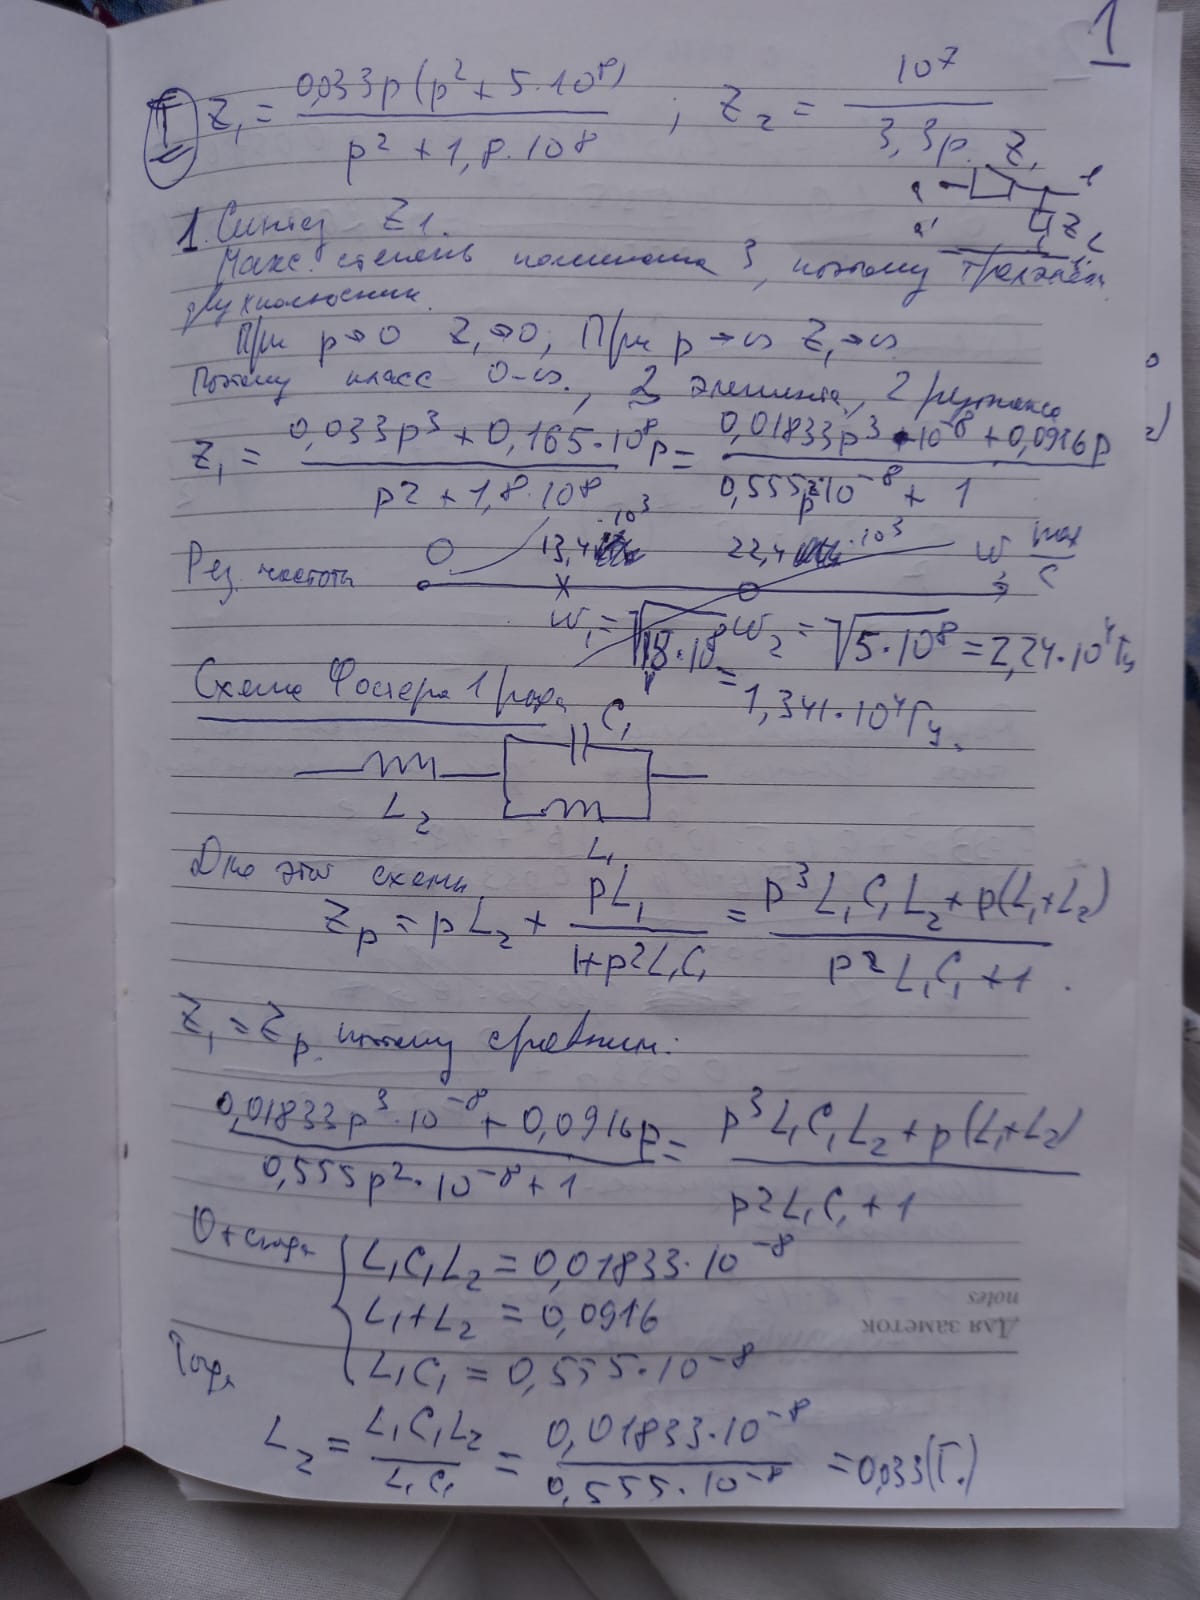 1
I Z₁ = 0,033p(p² + 5·10⁸) / p² + 1,8·10⁸ ; Z₂ = 10⁷ / 3,3p.
Z₁
a
a'
Z₂
1. Синтез Z₁.
Макс. степень полинома 3, поэтому трехэлем.
двухполюсник.
При p→0 Z₁→0, При p→∞ Z₁→∞
Поэтому класс 0-∞., 2 резонанса
Z₁ = 0,033p³ + 0,165·10⁸p / p² + 1,8·10⁸ = 0,01833p³·10⁻⁸ + 0,0916p / 0,555p²·10⁻⁸ + 1
Рез. частоты 0 13,4·10³ 22,4·10³ ω
ω₁ = √1,8·10⁸ = 1,341·10⁴ Гц. ω₂ = √5·10⁸ = 2,24·10⁴ Гц
Схема Фостера 1 рода
C₁
L₂
L₁
Для этой схемы
Zₚ = pL₂ + pL₁ / 1+p²L₁C₁ = p³L₁C₁L₂ + p(L₁+L₂) / p²L₁C₁+1.
Z₁ = Zₚ. поэтому сравним:
0,01833p³·10⁻⁸ + 0,0916p / 0,555p²·10⁻⁸ + 1 = p³L₁C₁L₂ + p(L₁+L₂) / p²L₁C₁ + 1
Отсюда L₁C₁L₂ = 0,01833·10⁻⁸
L₁+L₂ = 0,0916
L₁C₁ = 0,555·10⁻⁸
Для заметок
notes
Тогда
L₂ = L₁C₁L₂ / L₁C₁ = 0,01833·10⁻⁸ / 0,555·10⁻⁸ = 0,033(Г.)